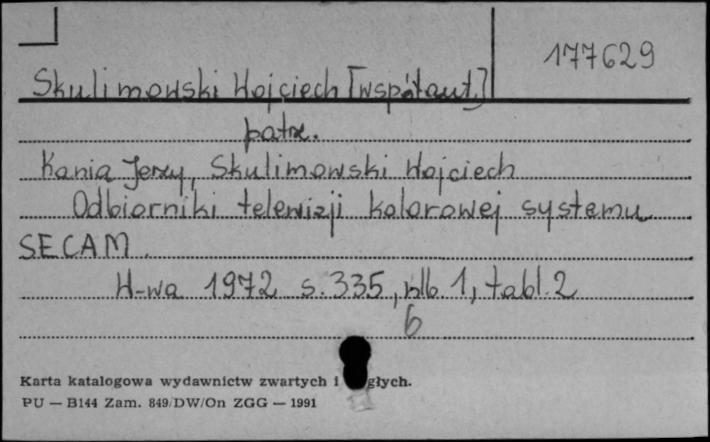 177629
Skulimowski Wojciech [współaut.]
patrz.
Kania Jerzy, Skulimowski Wojciech
Odbiorniki telewizji kolorowej systemu
SECAM.
W-wa 1972 s. 335, nlb. 1, tabl. 2
6
Karta katalogowa wydawnictw zwartych i głych.
PU — B144 Zam. 849/DW/On ZGG — 1991